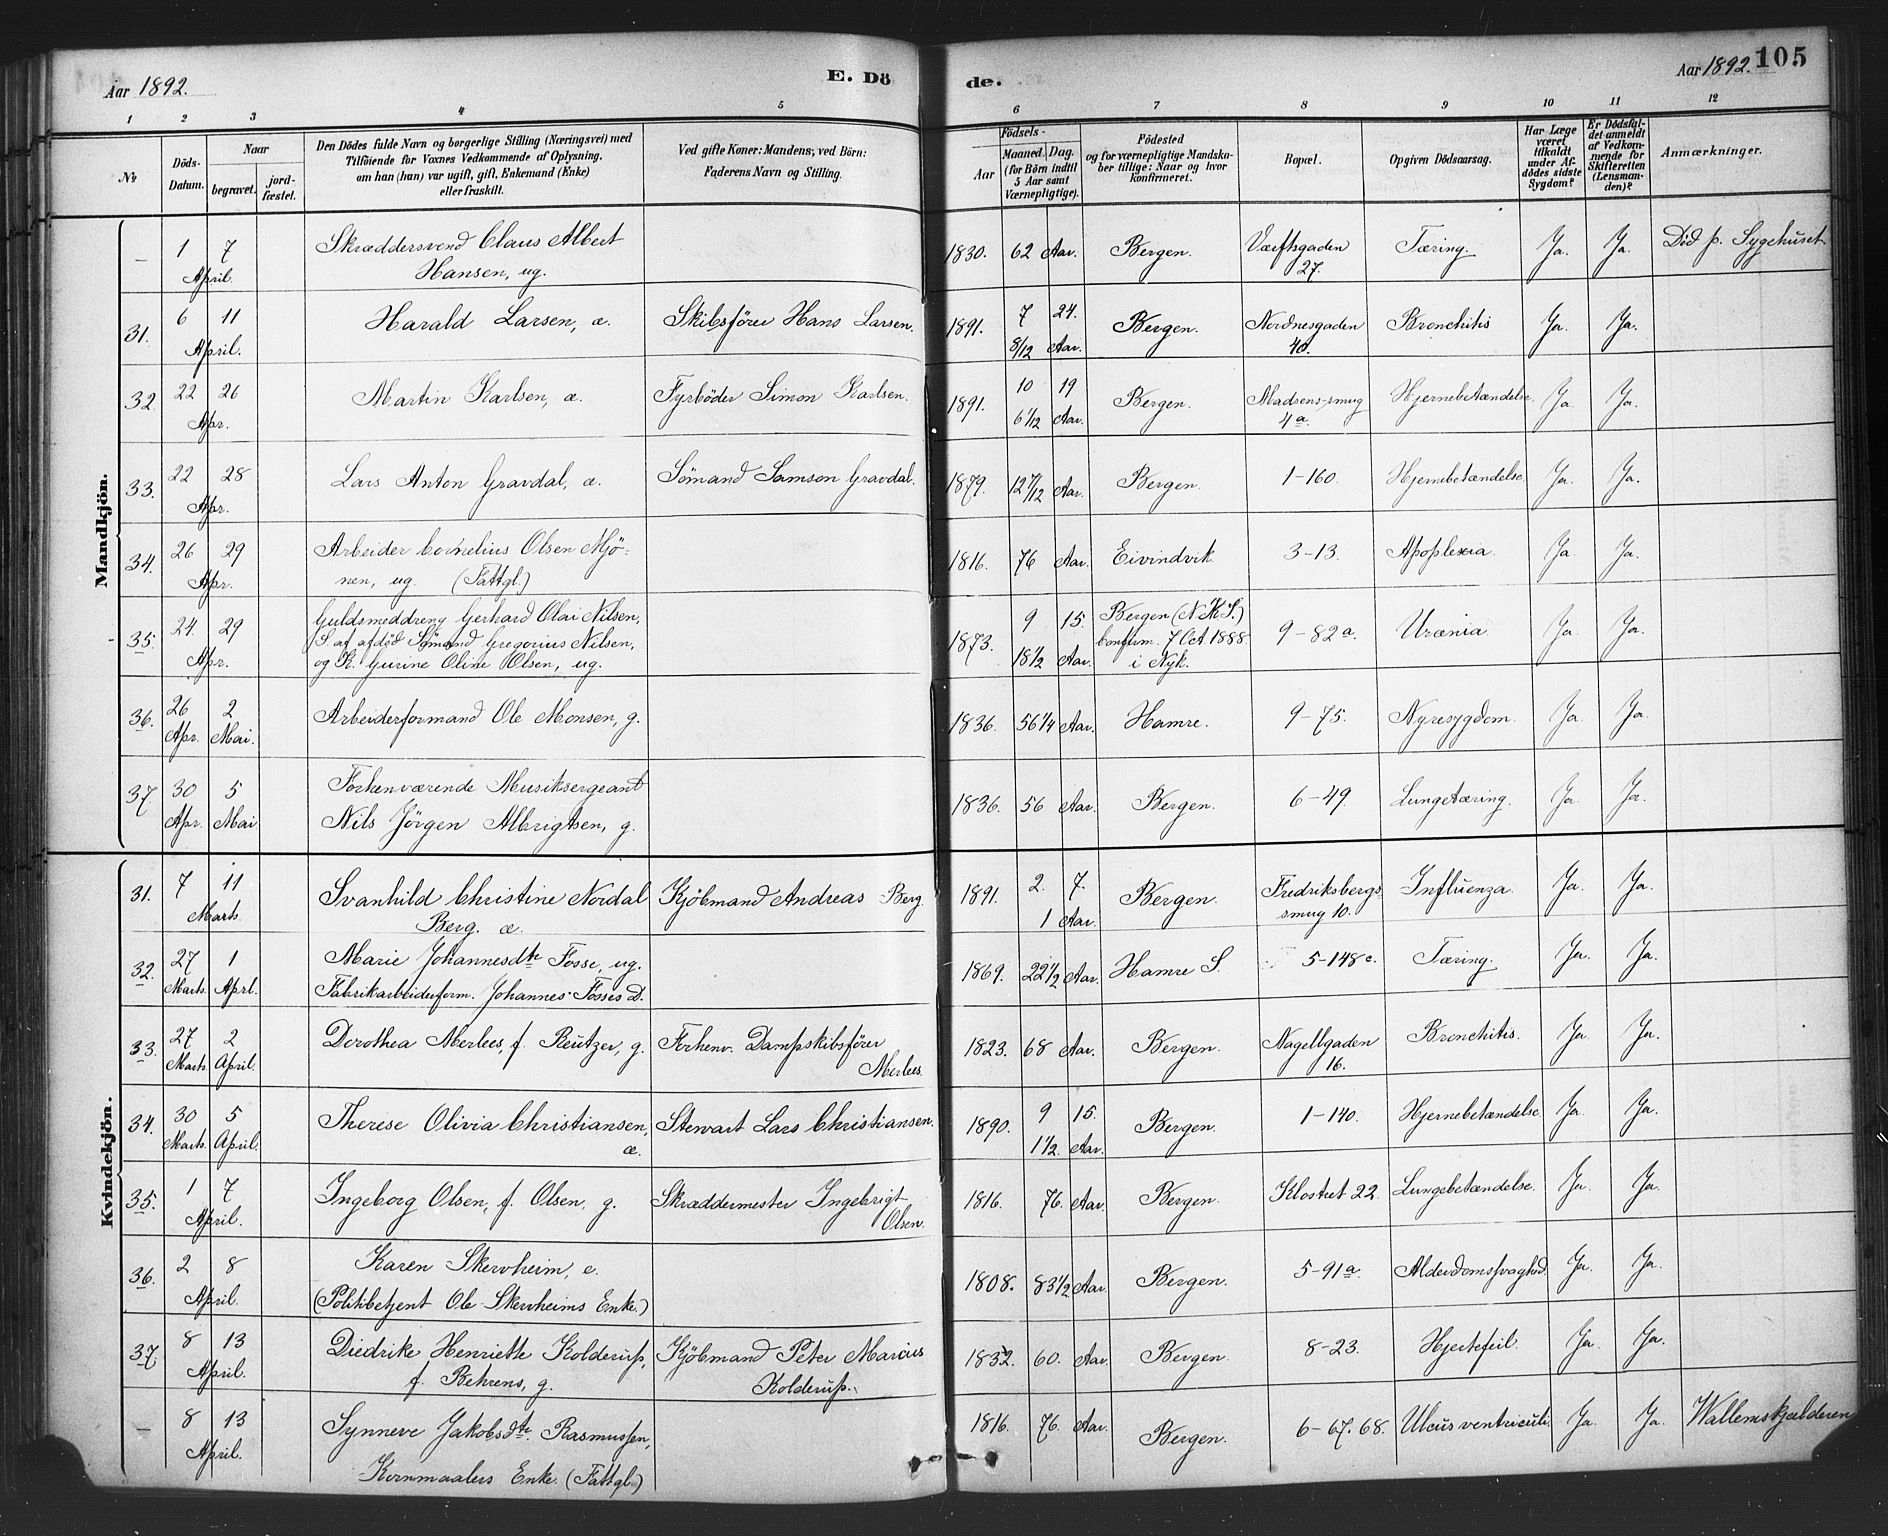 Aar 1892.
E. Dö
de.
Aar 1892. 105
1 2 3 4 5 6 7 8 9 10 11 12
Nr
Döds-Datum.
Naar
begravet.
jord-fæstet.
Den Dödes fulde Navn og borgerlige Stilling (Næringsvei) med
Tilföiende for Voxnes Vedkommende af Oplysning,
om han (hun) var ugift, gift, Enkemand (Enke)
eller fraskilt.
Ved gifte Koner: Mandens, ved Börn:
Faderens Navn og Stilling.
Födsels-
Aar
Maaned. Dag.
(for Börn indtil
5 Aar samt
Værnepligtige).
Födested
og for værnepligtige Mandska-
ber tillige: Naar og hvor
konfirmeret.
Bopæl.
Opgiven Dödsaarsag.
Har Læge
været
tilkaldt
under Af-
dödes sidste
Sygdom?
Er Dödsfal-
det anmeldt
af Vedkom-
mende for
Skifteretten
(Lensman-
den)?
Anmærkninger.
Mandkjön.
– 1 7 Skræddersvend Claus Albert 1830. 62 Aar. Bergen. Værftsgaden Tæring. Ja. Ja. Död p. Sygehuset
April. Hansen, ug. 27.
31. 6 11 Harald Larsen, æ. Skibsförer Hans Larsen. 1891. 7 24. Bergen. Nordnesgaden Bronchitis Ja. Ja.
April. 8/12 Aar. 40.
32. 22 26 Martin Karlsen, æ. Fyrböder Simon Karlsen. 1891. 10 19 Bergen. Madsens-smug Hjernebetændelse. Ja. Ja.
Apr. 6 1/12 Aar. 4a.
33. 22 28 Lars Anton Gravdal, æ. Sömand Samson Gravdal. 1879. 12 7/12 Aar. Bergen. 1-160. Hjernebetændelse. Ja. Ja.
Apr.
34. 26 29 Arbeider Cornelius Olsen Mjö- 1816. 76 Aar. Eivindvik. 3-13. Apoplexia. Ja Ja.
Apr. nen, ug. (Fattgl.)
35. 24. 29 Guldsmeddreng Gerhard Olai Nilsen, 1873. 9 15. Bergen (N.K.S.) 9-82a. Urænia Ja. Ja.
S. af afdöd Sömand Gregorius Nilsen, Confirm. 7 Oct 1888
Apr. og K. Gurine Oline Olsen, ug. 18 1/2 Aar. i Nyk.
36. 26 2 Arbeiderformand Ole Monsen, g. 1836. 56 1/4 Aar. Hamre. 9-75. Nyresygdom. Ja. Ja.
Apr. Mai.
37. 30 5 Forhenværende Musiksergeant 1836. 56 Aar. Bergen. 6-49. Lungetæring. Ja. Ja.
Apr. Mai Nils Jörgen Albrigtsen, g.
Kvindekjön.
31. 7 11 Svanhild Christine Nordal Kjöbmand Andreas Berg 1891. 2. 7. Bergen. Fredriksbergs- Influenza. Ja. Ja.
Marts. Berg. æ. 1 Aar. smug 10.
32. 27 1 Marie Johannesdtr Fosse, ug. 1869. 22 1/2 Aar. Hamre S. 5-148c. Tæring. Ja. Ja.
Marts. Aprl. Fabrikarbeiderform. Johannes Fosses D.
33. 27 2 Dorothea Merlees, f. Reutzer, g. Forhenv. Dampskibsförer 1823. 68 Aar. Bergen. Nagellgaden Bronchitis. Ja. Ja.
Marts. April. Merlees. 16.
34. 30 5 Therese Olivia Christiansen, Stewart Lars Christiansen. 1890. 9 15. Bergen. 1-140. Hjernebetændelse. Ja. Ja.
Marts. April. æ. 1 1/2. Aar.
35. 1 7 Ingeborg Olsen, f. Olsen, g. Skræddermester Ingebrigt 1816. 76. Aar. Bergen. Klostret 22. Lungebetændelse. Ja. Ja.
April. Olsen.
36. 2 8 Karen Skervheim, e. 1808. 83 1/2 Aar. Bergen. 5-91a. Alderdomssvaghed. Ja. Ja.
April. (Politibetjent Ole Skervheims Enke.)
37. 8 13 Diedrike Henriette Kolderup, Kjöbmand Peter Marcus 1832. 60. Aar. Bergen. 8-23. Hjertefeil. Ja. Ja.
April. f. Behrens, g. Kolderup.
– 8 13 Synneve Jakobsdtr. Rasmussen, 1816. 76. Aar. Bergen. 6-67.68. Ulcus ventriculi. Ja. Ja. Wallemskjælderen
April. Kornmaalers Enke. (Fattgl.)